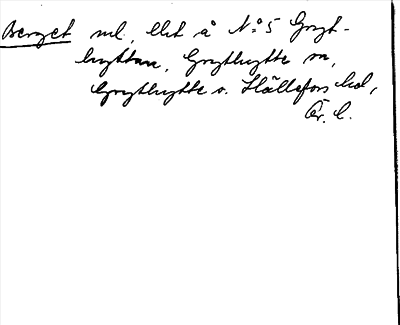 Berget ml, lht å No 5 Gryt-
hyttan, Grythytte sn,
Grythytte o. Hällefors hd,
Ör. l.